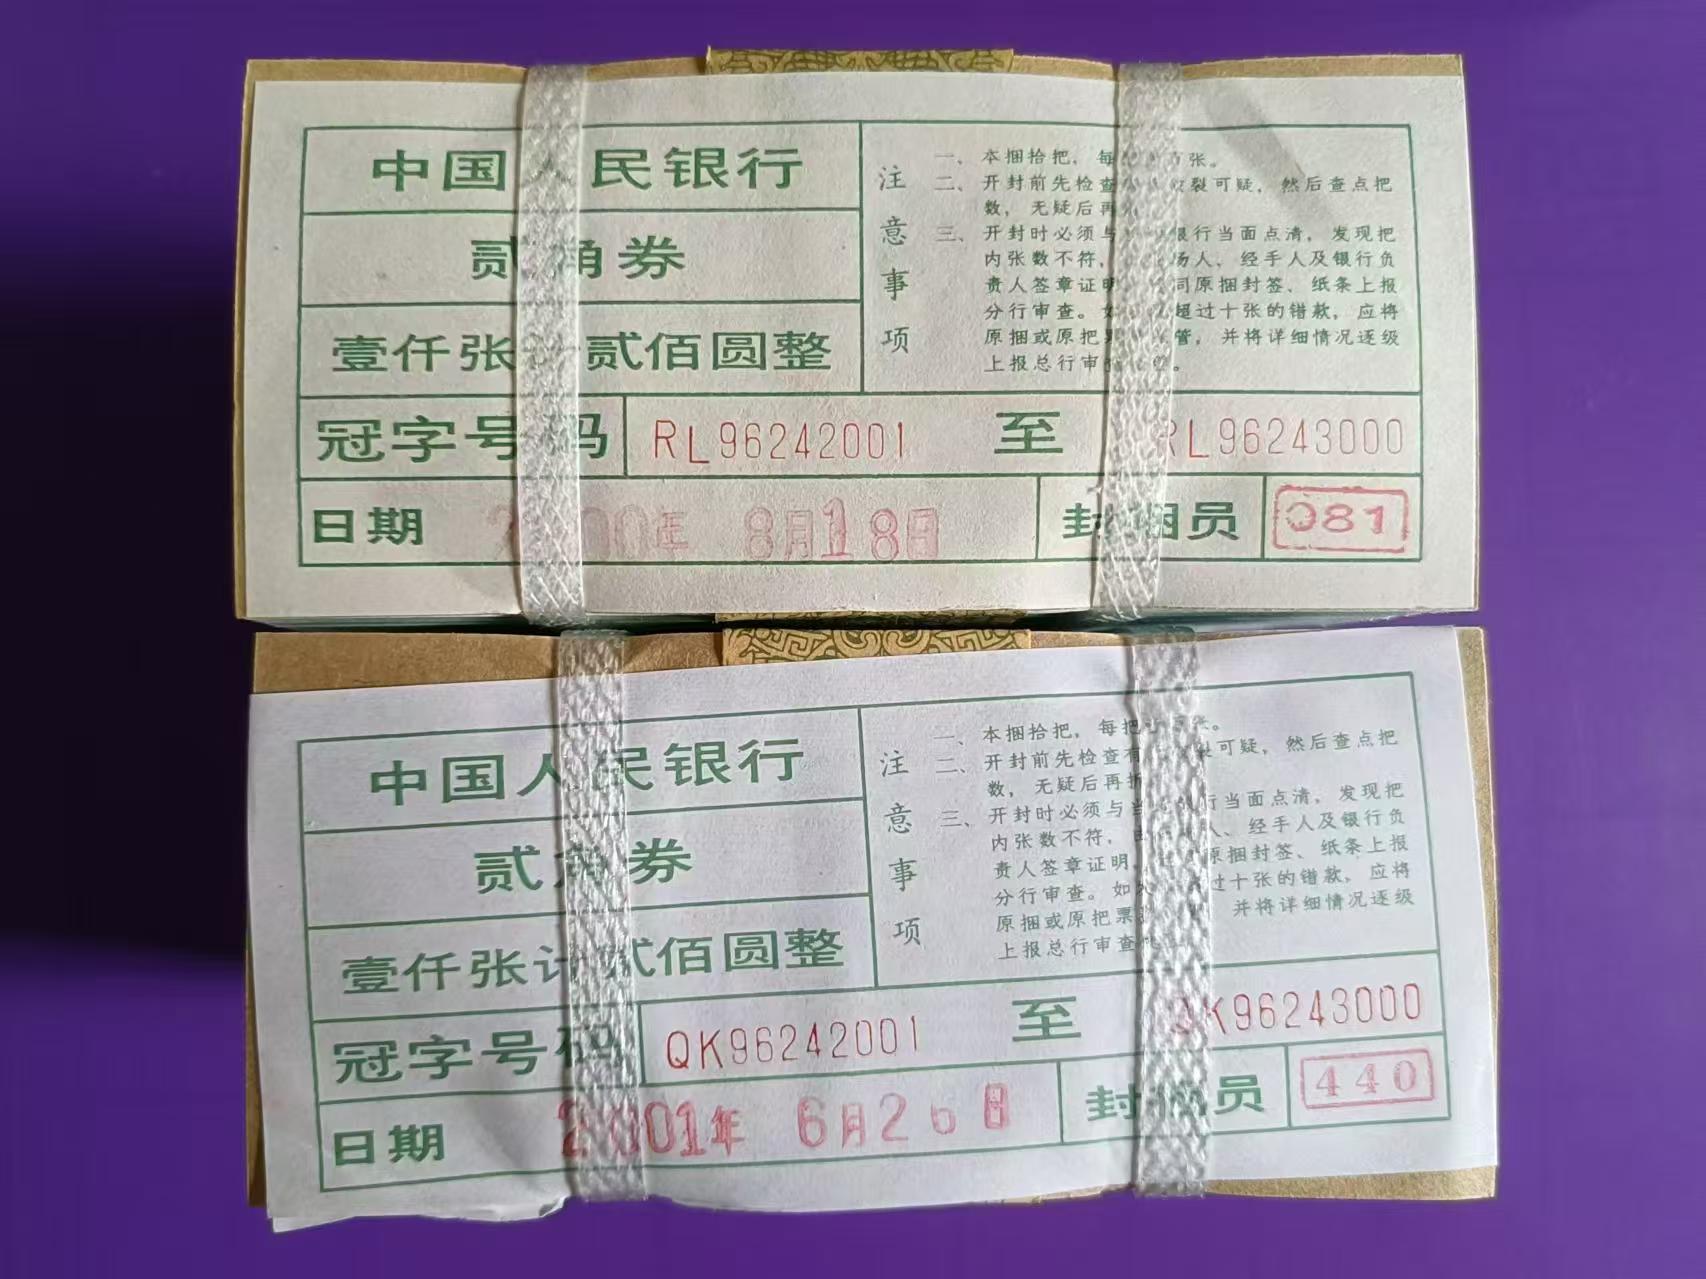 中国人民银行
贰角券
壹仟张计贰佰圆整
注意事项
一、本捆拾把，每 百张。
二、开封前先检查 破裂可疑，然后查点把
数，无疑后再
三、开封时必须与 银行当面点清，发现把
内张数不符， 场人、经手人及银行负
责人签章证明 同原捆封签、纸条上报
分行审查。如 超过十张的错款，应将
原捆或原把票 管，并将详细情况逐级
上报总行审
冠字号码 RL96242001 至 RL96243000
日期 2000年 8月18日 封捆员 081
中国人民银行
贰角券
壹仟张计贰佰圆整
注意事项
一、本捆拾把，每把 百张。
二、开封前先检查有 裂可疑，然后查点把
数，无疑后再拆
三、开封时必须与当 行当面点清，发现把
内张数不符， 人、经手人及银行负
责人签章证明， 原捆封签、纸条上报
分行审查。如 过十张的错款，应将
原捆或原把票 并将详细情况逐级
上报总行审查
冠字号码 QK96242001 至 QK96243000
日期 2001年 6月26日 封捆员 440